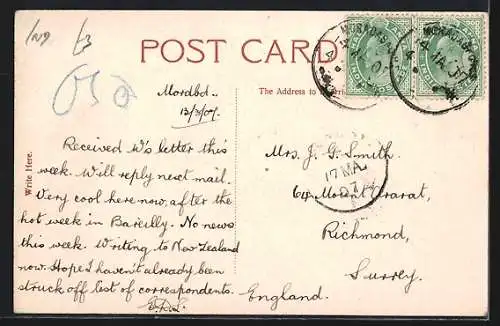 IND
£3
POST CARD
Mordbd.
13/3/07.
The Address to be
Write Here.
Received W's letter this
week. Will reply next mail.
Very cool here now, after the
hot week in Bareilly. No news
this week. Writing to New Zealand
now. Hope I haven't already been
struck off list of correspondents.
E.R.S.
MORADABAD
Mrs. J. G. Smith.
17 MA
07
64 Mount Ararat,
Richmond,
Surrey.
England.